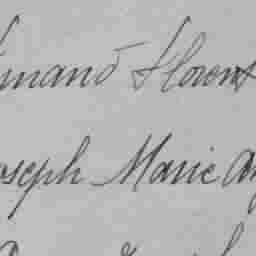 mand Florent
oseph Marie An